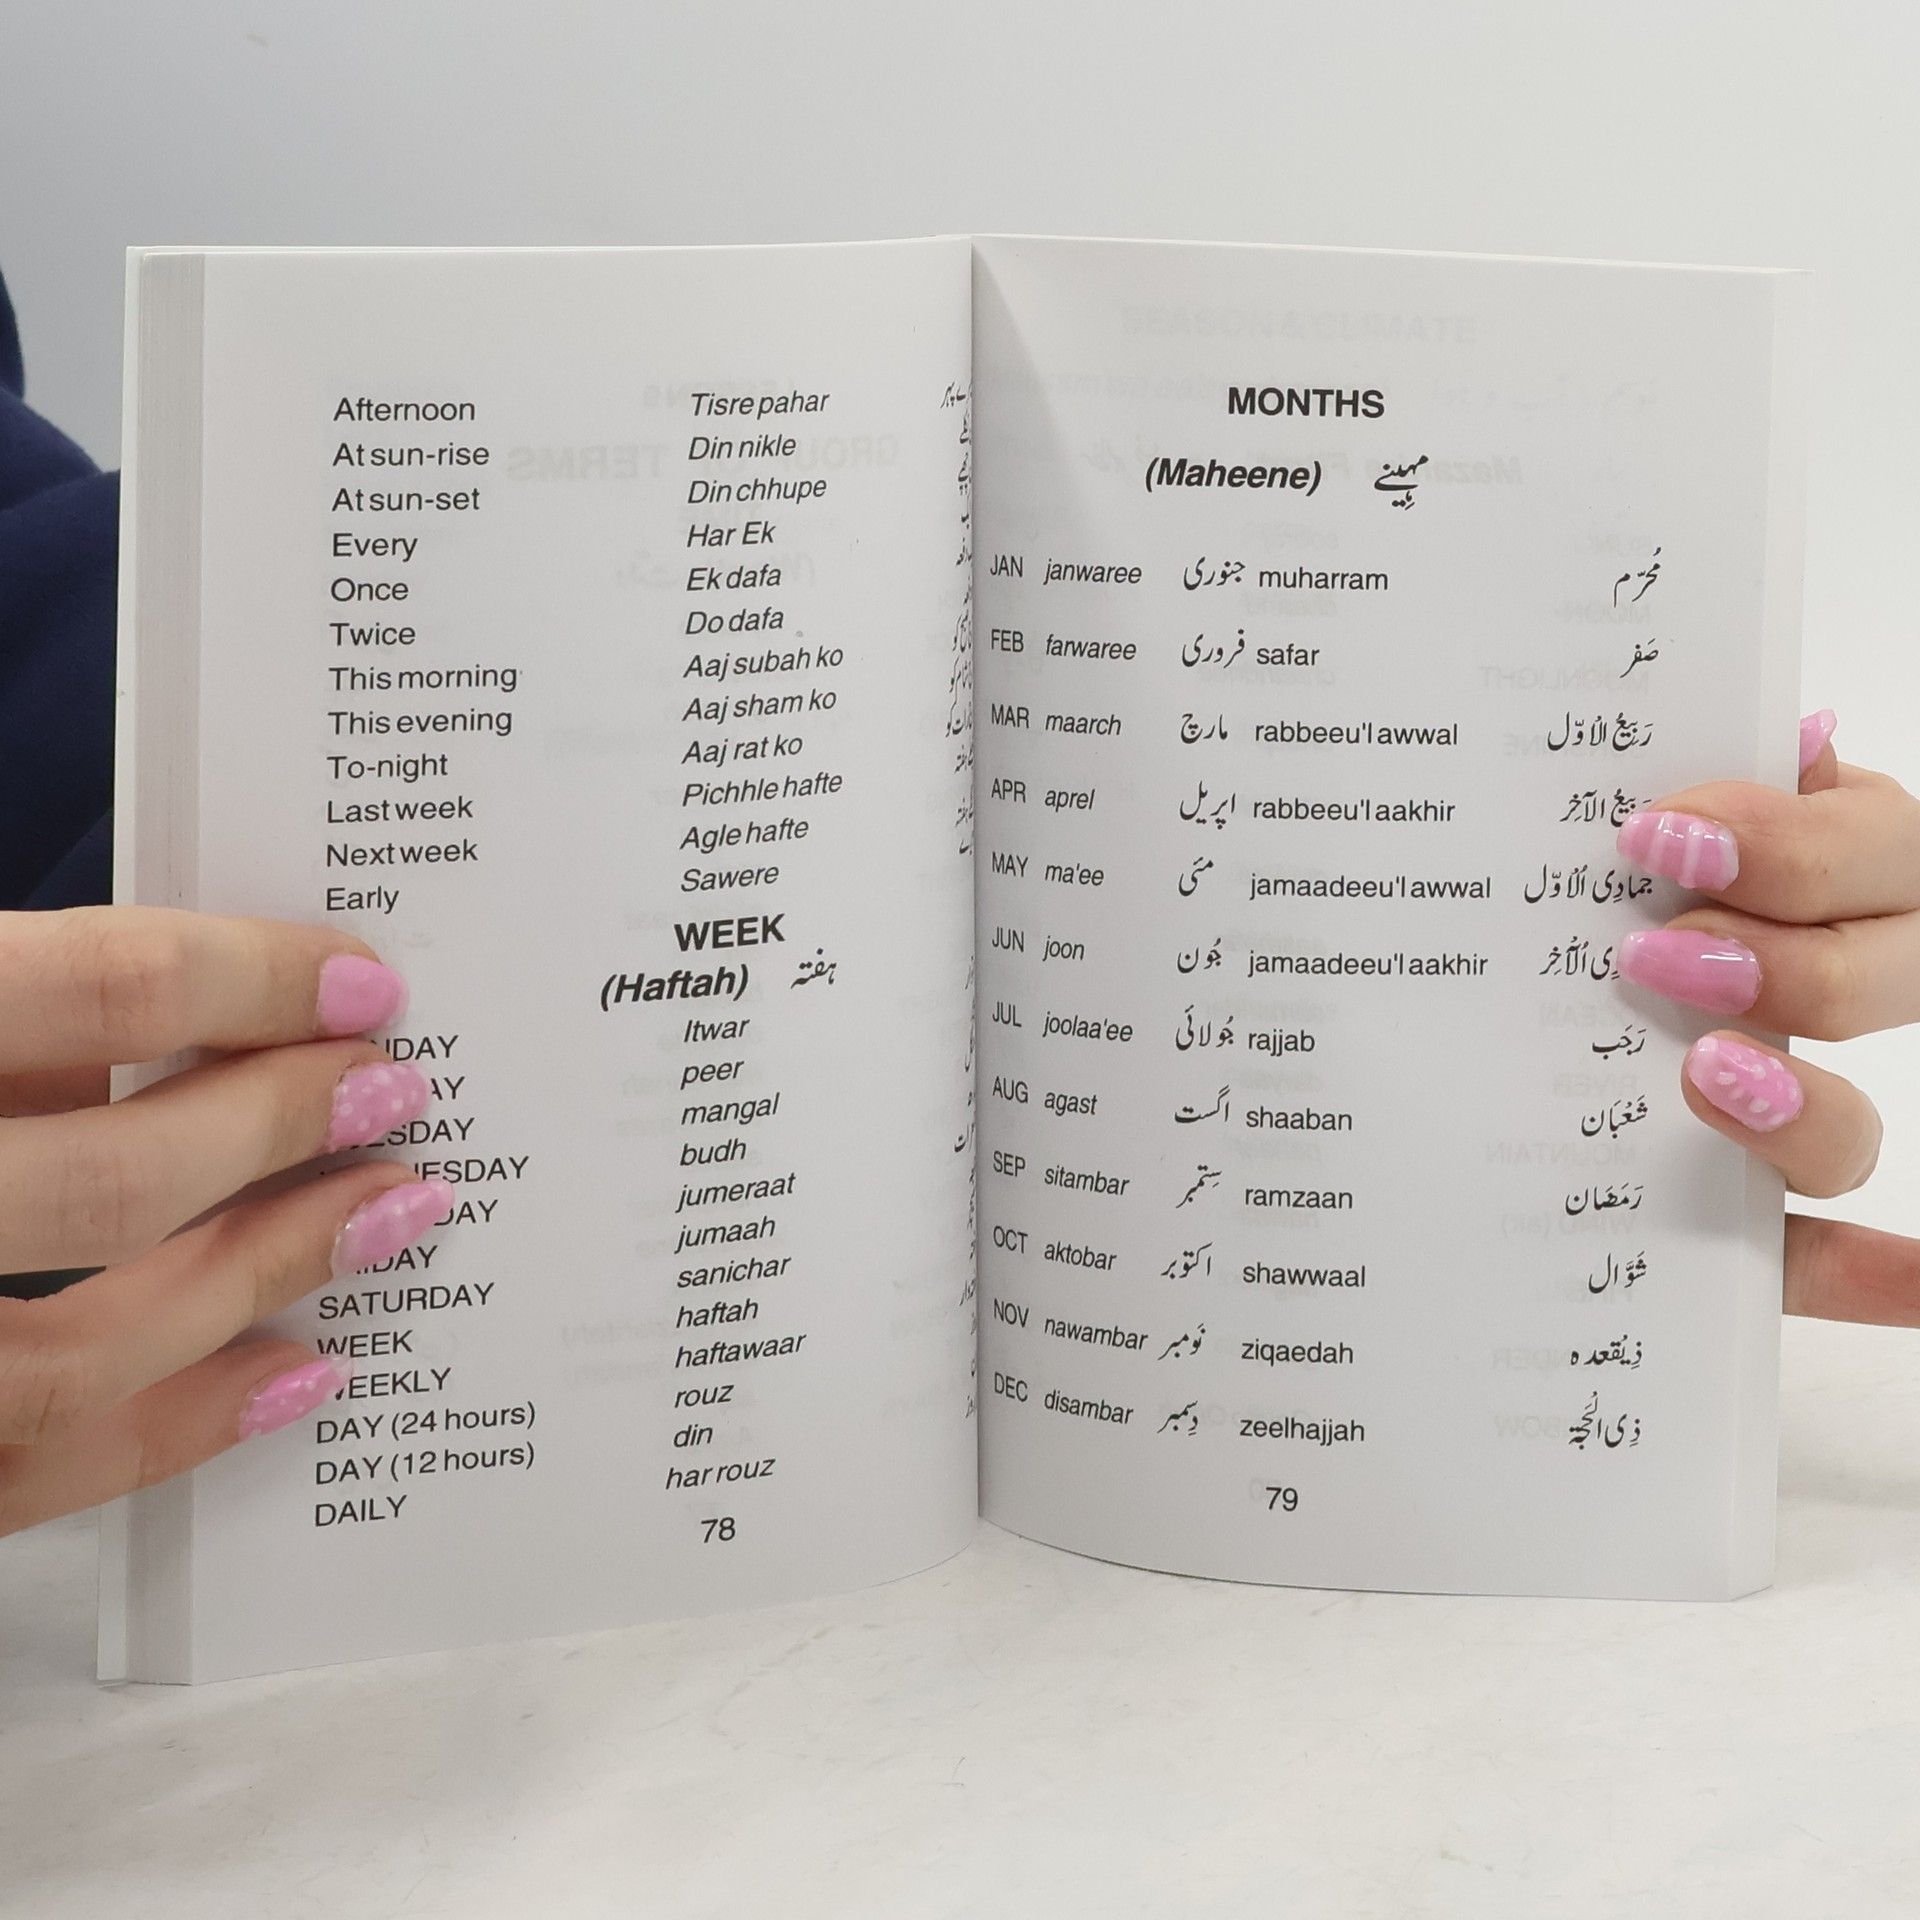 Afternoon Tisre pahar
At sun-rise Din nikle
At sun-set Din chhupe
Every Har Ek
Once Ek dafa
Twice Do dafa
This morning Aaj subah ko
This evening Aaj sham ko
To-night Aaj rat ko
Last week Pichhle hafte
Next week Agle hafte
Early Sawere
WEEK
(Haftah) ہفتہ
Itwar
peer
mangal
budh
jumeraat
jumaah
SATURDAY sanichar
WEEK haftah
WEEKLY haftawaar
DAY (24 hours) rouz
DAY (12 hours) din
DAILY har rouz
78
MONTHS
(Maheene) مہینے
JAN janwaree جنوری muharram مُحرّم
FEB farwaree فروری safar صَفر
MAR maarch مارچ rabbeeu'l awwal رَبِیعُ الْاوّل
APR aprel اپریل rabbeeu'l aakhir الآخِر
MAY ma'ee مئی jamaadeeu'l awwal جمادِی الْاوّل
JUN joon جُون jamaadeeu'l aakhir الْآخِر
JUL joolaa'ee جُولائی rajjab رَجَب
AUG agast اگست shaaban شَعْبَان
SEP sitambar سِتمبر ramzaan رَمَضَان
OCT aktobar اکتوبر shawwaal شَوَّال
NOV nawambar نَومبر ziqaedah ذِیْقعدہ
DEC disambar دِسمبر zeelhajjah ذِی الحَجّۃ
79